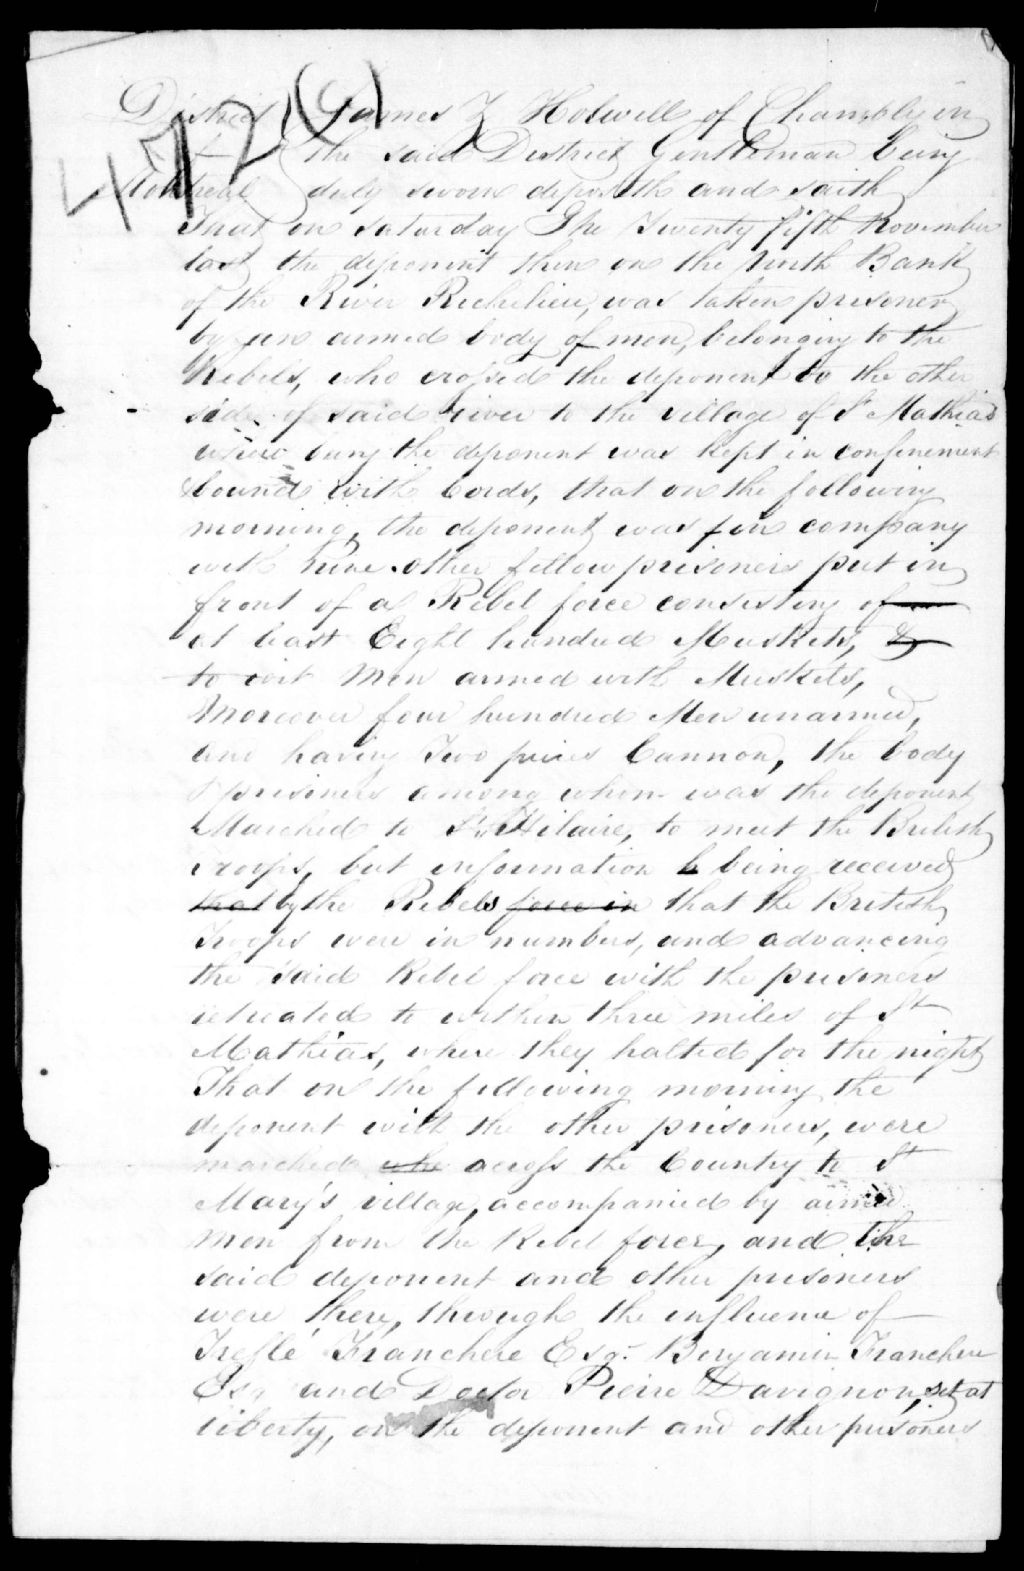 472(9)
District } James Holwell of Chambly in
of } the said District Gentleman being
Montreal } duly sworn deposeth and saith
That on saturday The Twenty fifth November
last the deponent then on the North Bank
of the River Richelieu, was taken prisoner
by an armed body of men, belonging to the
Rebels, who crossed the deponent to the other
side of said river to the village of St Mathias
where being the deponent was kept in confinement
bound with Cords, that on the following
morning, the deponent was in company
with nine other fellow prisoners put in
front of a Rebel force consisting of
at least Eight hundred Muskets, &
to wit Men armed with Muskets,
Moreover four hundred Men unarmed,
and having Two pieces Cannon, the body
& prisoners among whom was the deponent
Marched to St Hilaire, to meet the British
Troops, but information b being received
that by the Rebels force in that the British
Troops were in numbers, and advancing
the said Rebel force with the prisoners
retreated to within three miles of St
Mathias, where they halted for the night
That on the following morning the
deponent with the other prisoners, were
marched whe across the Country to St
Mary's village, accompanied by armed
men from the Rebel force, and the
said deponent and other prisoners
were there, through the influence of
Treflé Franchere Esqr. Benjamin Franchere
Esqr and Doctor Pierre Davignon, set at
liberty, on the deponent and other prisoners